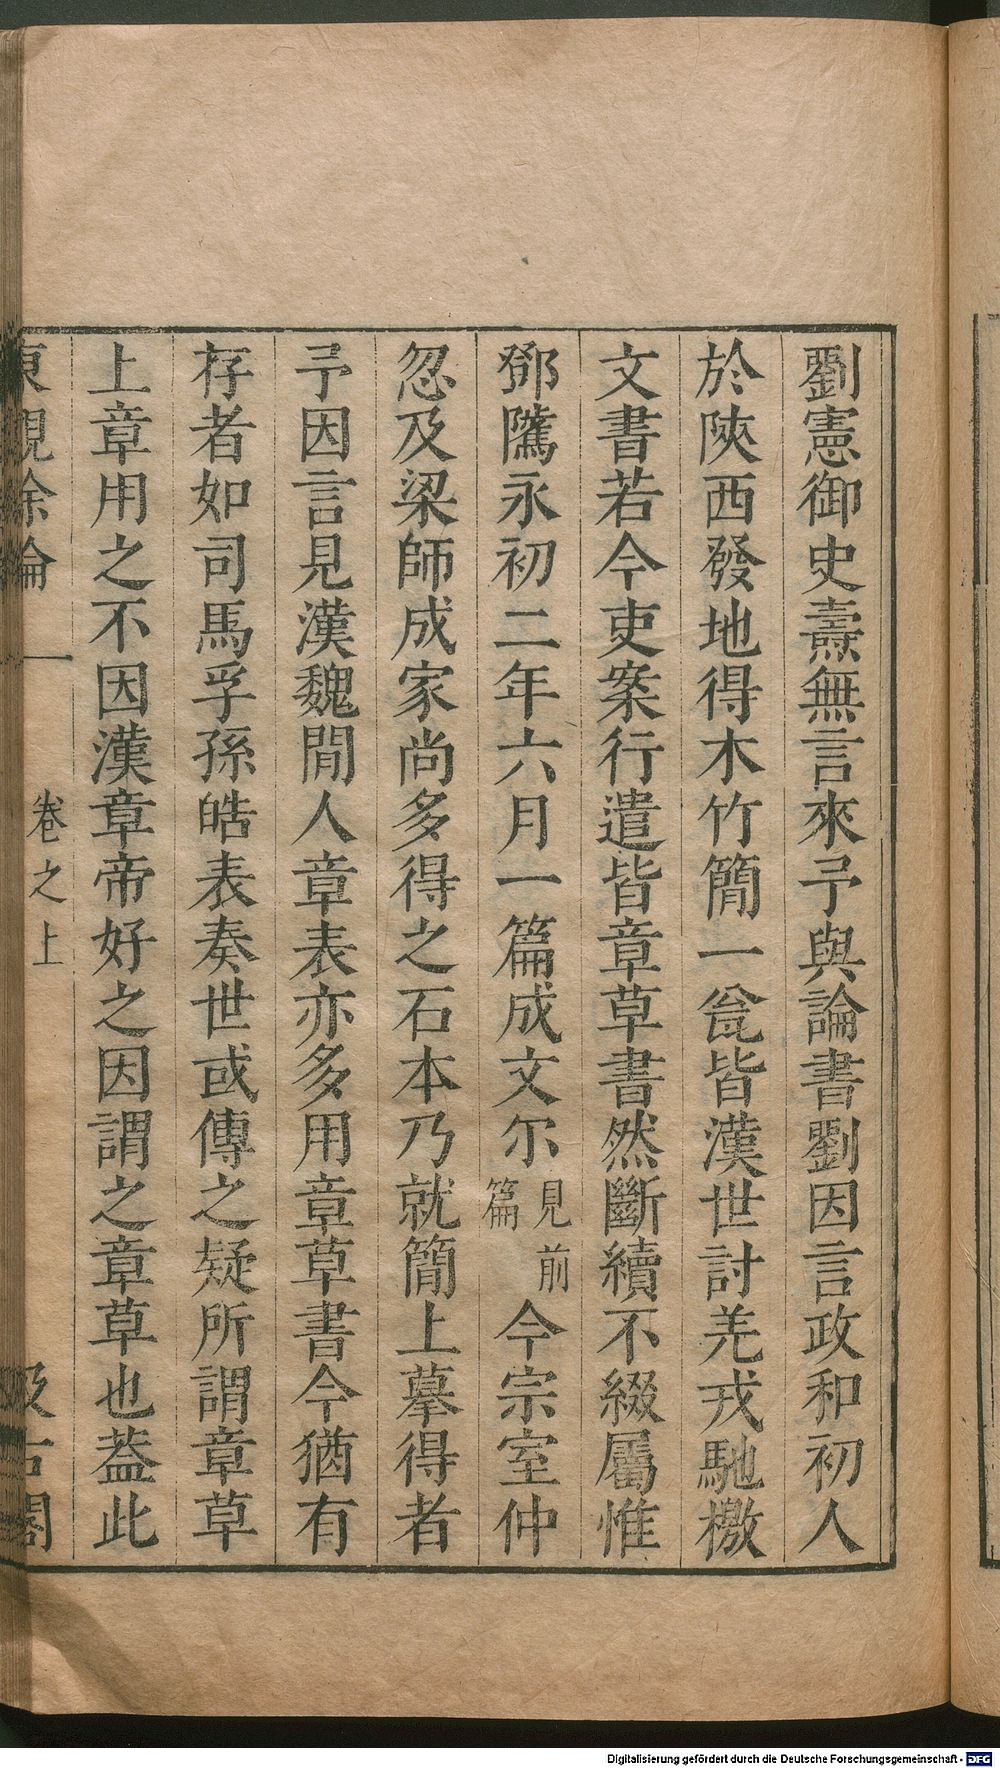 劉憲御史燾無言來予與論書劉因言政和初人
於陝西發地得木竹簡一瓮皆漢世討羌戎馳檄
文書若今吏案行遣皆章草書然斷續不綴屬惟
鄧隲永初二年六月一篇成文尔見前篇今宗室仲
忽及梁師成家尚多得之石本乃就簡上摹得者
予因言見漢魏間人章表亦多用章草書今猶有
存者如司馬孚孫皓表奏世或傳之疑所謂章草
上章用之不因漢章帝好之因謂之章草也葢此
東觀餘論 卷之上 汲古閣
Digitalisierung gefördert durch die Deutsche Forschungsgemeinschaft - DFG